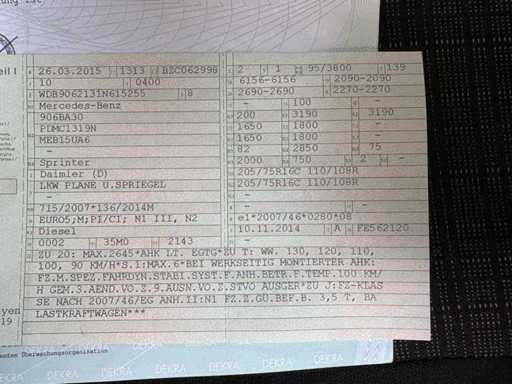 26.03.2015 1313 BZC062998 2 1 95/3800 139
10 0400 6156-6156 2090-2090
WDB9062131N615255 8 2690-2690 2270-2270
Mercedes-Benz - 100 -
906BA30 200 3190 3190
PDMC1319N 1650 1800 -
MEB15UA6 1650 1800 -
- 82 2850 75
Sprinter 2000 750 2 -
Daimler (D) 205/75R16C 110/108R
LKW PLANE U.SPRIEGEL 205/75R16C 110/108R
- -
715/2007*136/2014M -
EURO5;M;PI/CI; N1 III, N2 e1*2007/46*0280*08
Diesel 10.11.2014 A FE562120
0002 35M0 2143 -
ZU 20: MAX.2645*AHK LT. EGTG*ZU T: WW. 130, 120, 110,
100, 90 KM/H*S.1:MAX.6*BEI WERKSEITIG MONTIERTER AHK:
FZ.M.SPEZ.FAHRDYN.STABI.SYST.F.ANH.BETR.F.TEMP.100 KM/
H GEM.3.AEND.VO.Z.9.AUSN.VO.Z.STVO AUSGER*ZU J:FZ-KLAS
SE NACH 2007/46/EG ANH.II:N1 FZ.Z.GÜ.BEF.B. 3,5 T, BA
LASTKRAFTWAGEN***
yen
19
Überwachungsorganisation
DEKRA DEKRA DEKRA DEKRA